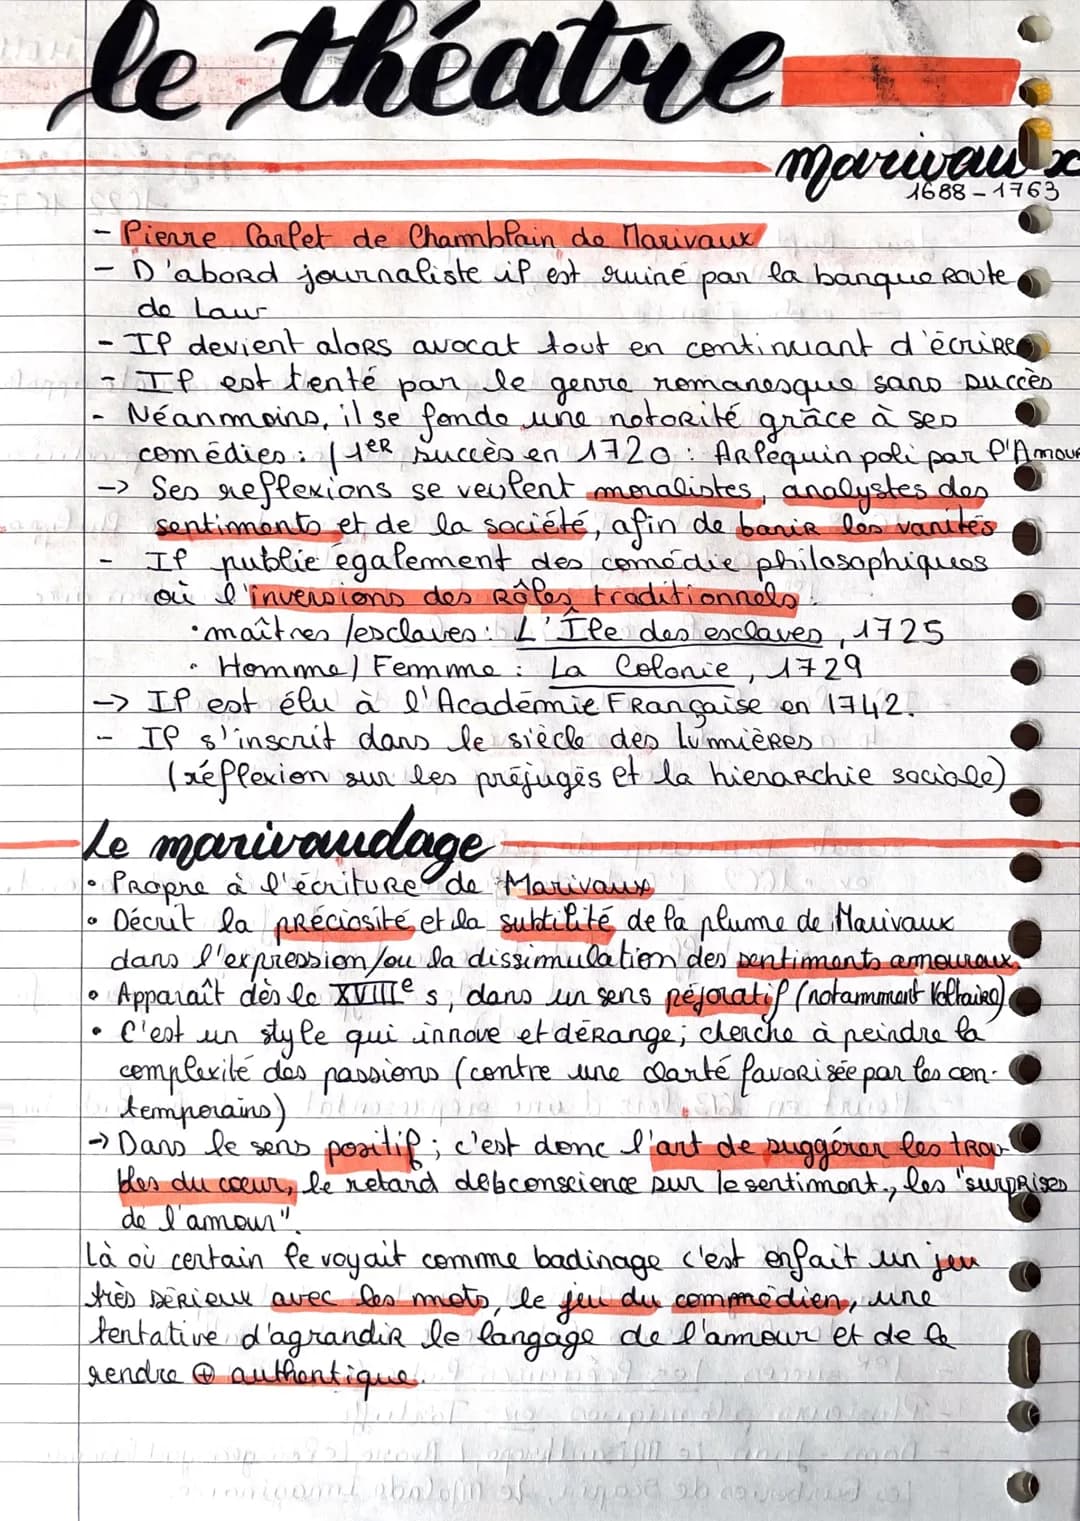 le théatre
marivaux
1688-1763
- Pierre Carlet de Chamblain de Marivaux
- D'abord journaliste il est ruiné par la banqueroute
de Law
- Il devient alors avocat tout en continuant d'écrire
- Il est tenté par le genre romanesque sans succès
- Néanmoins, il se fonde une notorité grâce à ses
comédies : (1er succès en 1720 : Arlequin poli par l'Amour
-> Ses reflexions se veulent moralistes, analystes des
sentiments et de la société, afin de banir les vanités
- Il publie également des comédie philosophiques
où l'inversions des Rôles traditionnels :
• maîtres /esclaves : L'Île des esclaves, 1725
• Homme / Femme : La Colonie, 1729
-> Il est élu à l'Académie Française en 1742.
- Il s'inscrit dans le siècle des lummières
(réflexion sur les préjugés et la hierarchie sociale)
Le marivaudage
• Propre à l'écriture de Marivaux
• Décrit la préciosité et la subtilité de la plume de Marivaux
dans l'expression/ou la dissimulation des sentiments amoureux
• Apparaît dès le XVIIIe s, dans un sens péjoratif (notamment Voltaire)
• C'est un style qui innove et dérange; cherche à peindre la
complexité des passions (contre une clarté favorisée par les con-
temporains)
-> Dans le sens positif; c'est donc l'art de suggérer les trou-
bles du cœur, le retard de conscience sur le sentiment, les "surprises
de l'amour".
Là où certain le voyait comme badinage c'est enfait un jeu
très sérieux avec les mots, le jeu du commédien, une
tentative d'agrandir le langage de l'amour et de le
rendre ⊕ authentique.